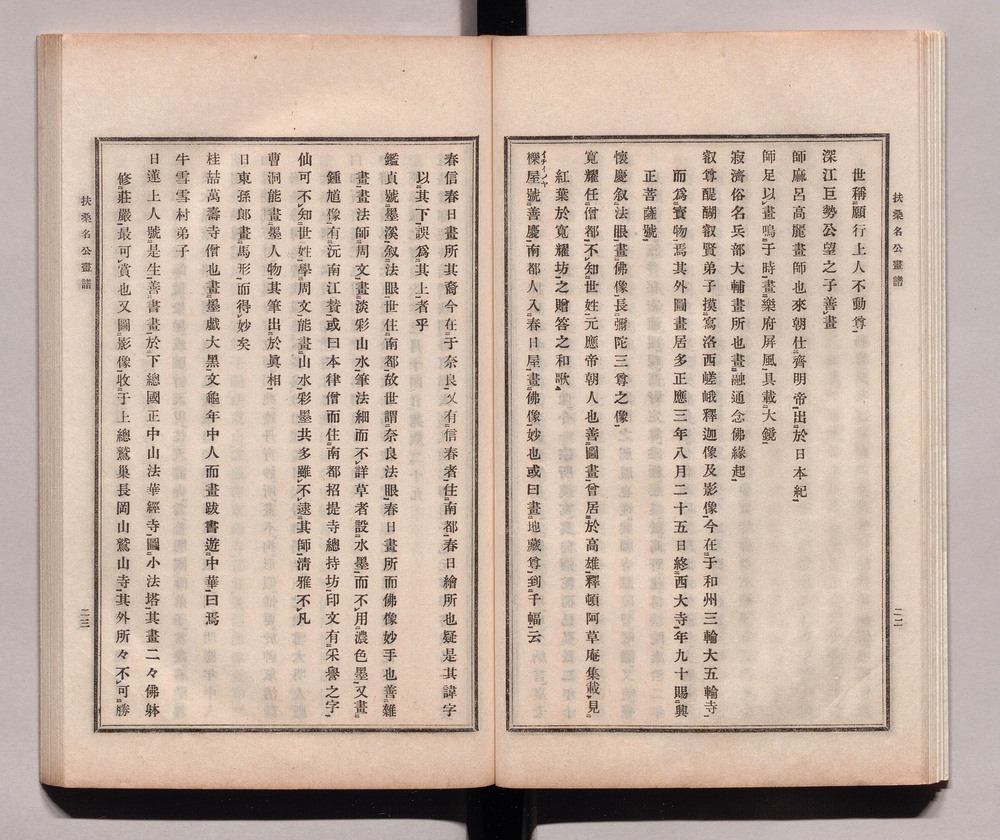 扶桑名公畫譜
二二
世稱願行上人不動尊
深江巨勢公望之子善畫
師麻呂高麗畫師也來朝仕齊明帝出於日本紀
師足以畫鳴于時畫樂府屏風具載大鏡
寂濟俗名兵部大輔畫所也畫融通念佛緣起
叡尊醍醐叡賢弟子摸寫洛西嵯峨釋迦像及影像今在于和州三輪大五輪寺
而爲寶物焉其外圖畫居多正應三年八月二十五日終西大寺年九十賜興
正菩薩號
懷慶叙法眼畫佛像長彌陀三尊之像
寬耀任僧都不知世姓元應帝朝人也善圖畫曾居於高雄釋頓阿草庵集載見
紅葉於寬耀坊之贈答之和歌
櫟屋號善慶南都人入春日屋畫佛像妙也或曰畫地藏尊到千幅云
イチノヤ
春信春日畫所其裔今在于奈良又有信春者住南都春日繪所也疑是其諱字
以其下誤爲其上者乎
鑑貞號墨溪叙法眼世住南都故世謂奈良法眼春日畫所而佛像妙手也善雜
畫畫法師周文畫淡彩山水筆法細而不詳草者設水墨而不用濃色墨又畫
鍾馗像有沅南江贊或曰本律僧而住南都招提寺總持坊印文有釆譽之字
仙可不知世姓學周文能畫山水彩墨共多雖不逮其師淸雅不凡
曹洞能畫墨人物其筆出於眞相
日東孫郞畫馬形而得妙矣
桂喆萬壽寺僧也畫墨戲大黑文龜年中人而畫跋書遊中華曰焉
牛雪雪村弟子
日蓮上人號是生善書畫於下總國正中山法華經寺圖小法塔其畫二々佛躰
修莊嚴最可賞也又圖影像收于上總鷲巢長岡山鷲山寺其外所々不可勝
扶桑名公畫譜
二三